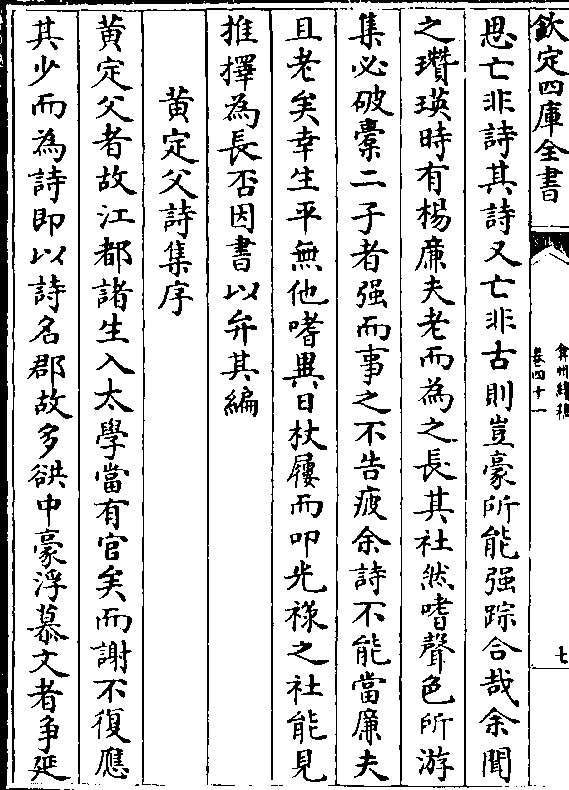 欽定四庫全書
弇州續稿
卷四十一
七
思亡非詩其詩又亡非古則豈豪所能强踪合哉余聞
之瓚瑛時有楊廉夫老而為之長其社然嗜聲色所游
集必破橐二子者强而事之不告疲余詩不能當廉夫
且老矣幸生平無他嗜異日杖屨而叩光禄之社能見
推擇為長否因書以弁其編
黄定父詩集序
黄定父者故江都諸生入太學當有官矣而謝不復應
其少而為詩即以詩名郡故多谼中豪浮慕文者争延